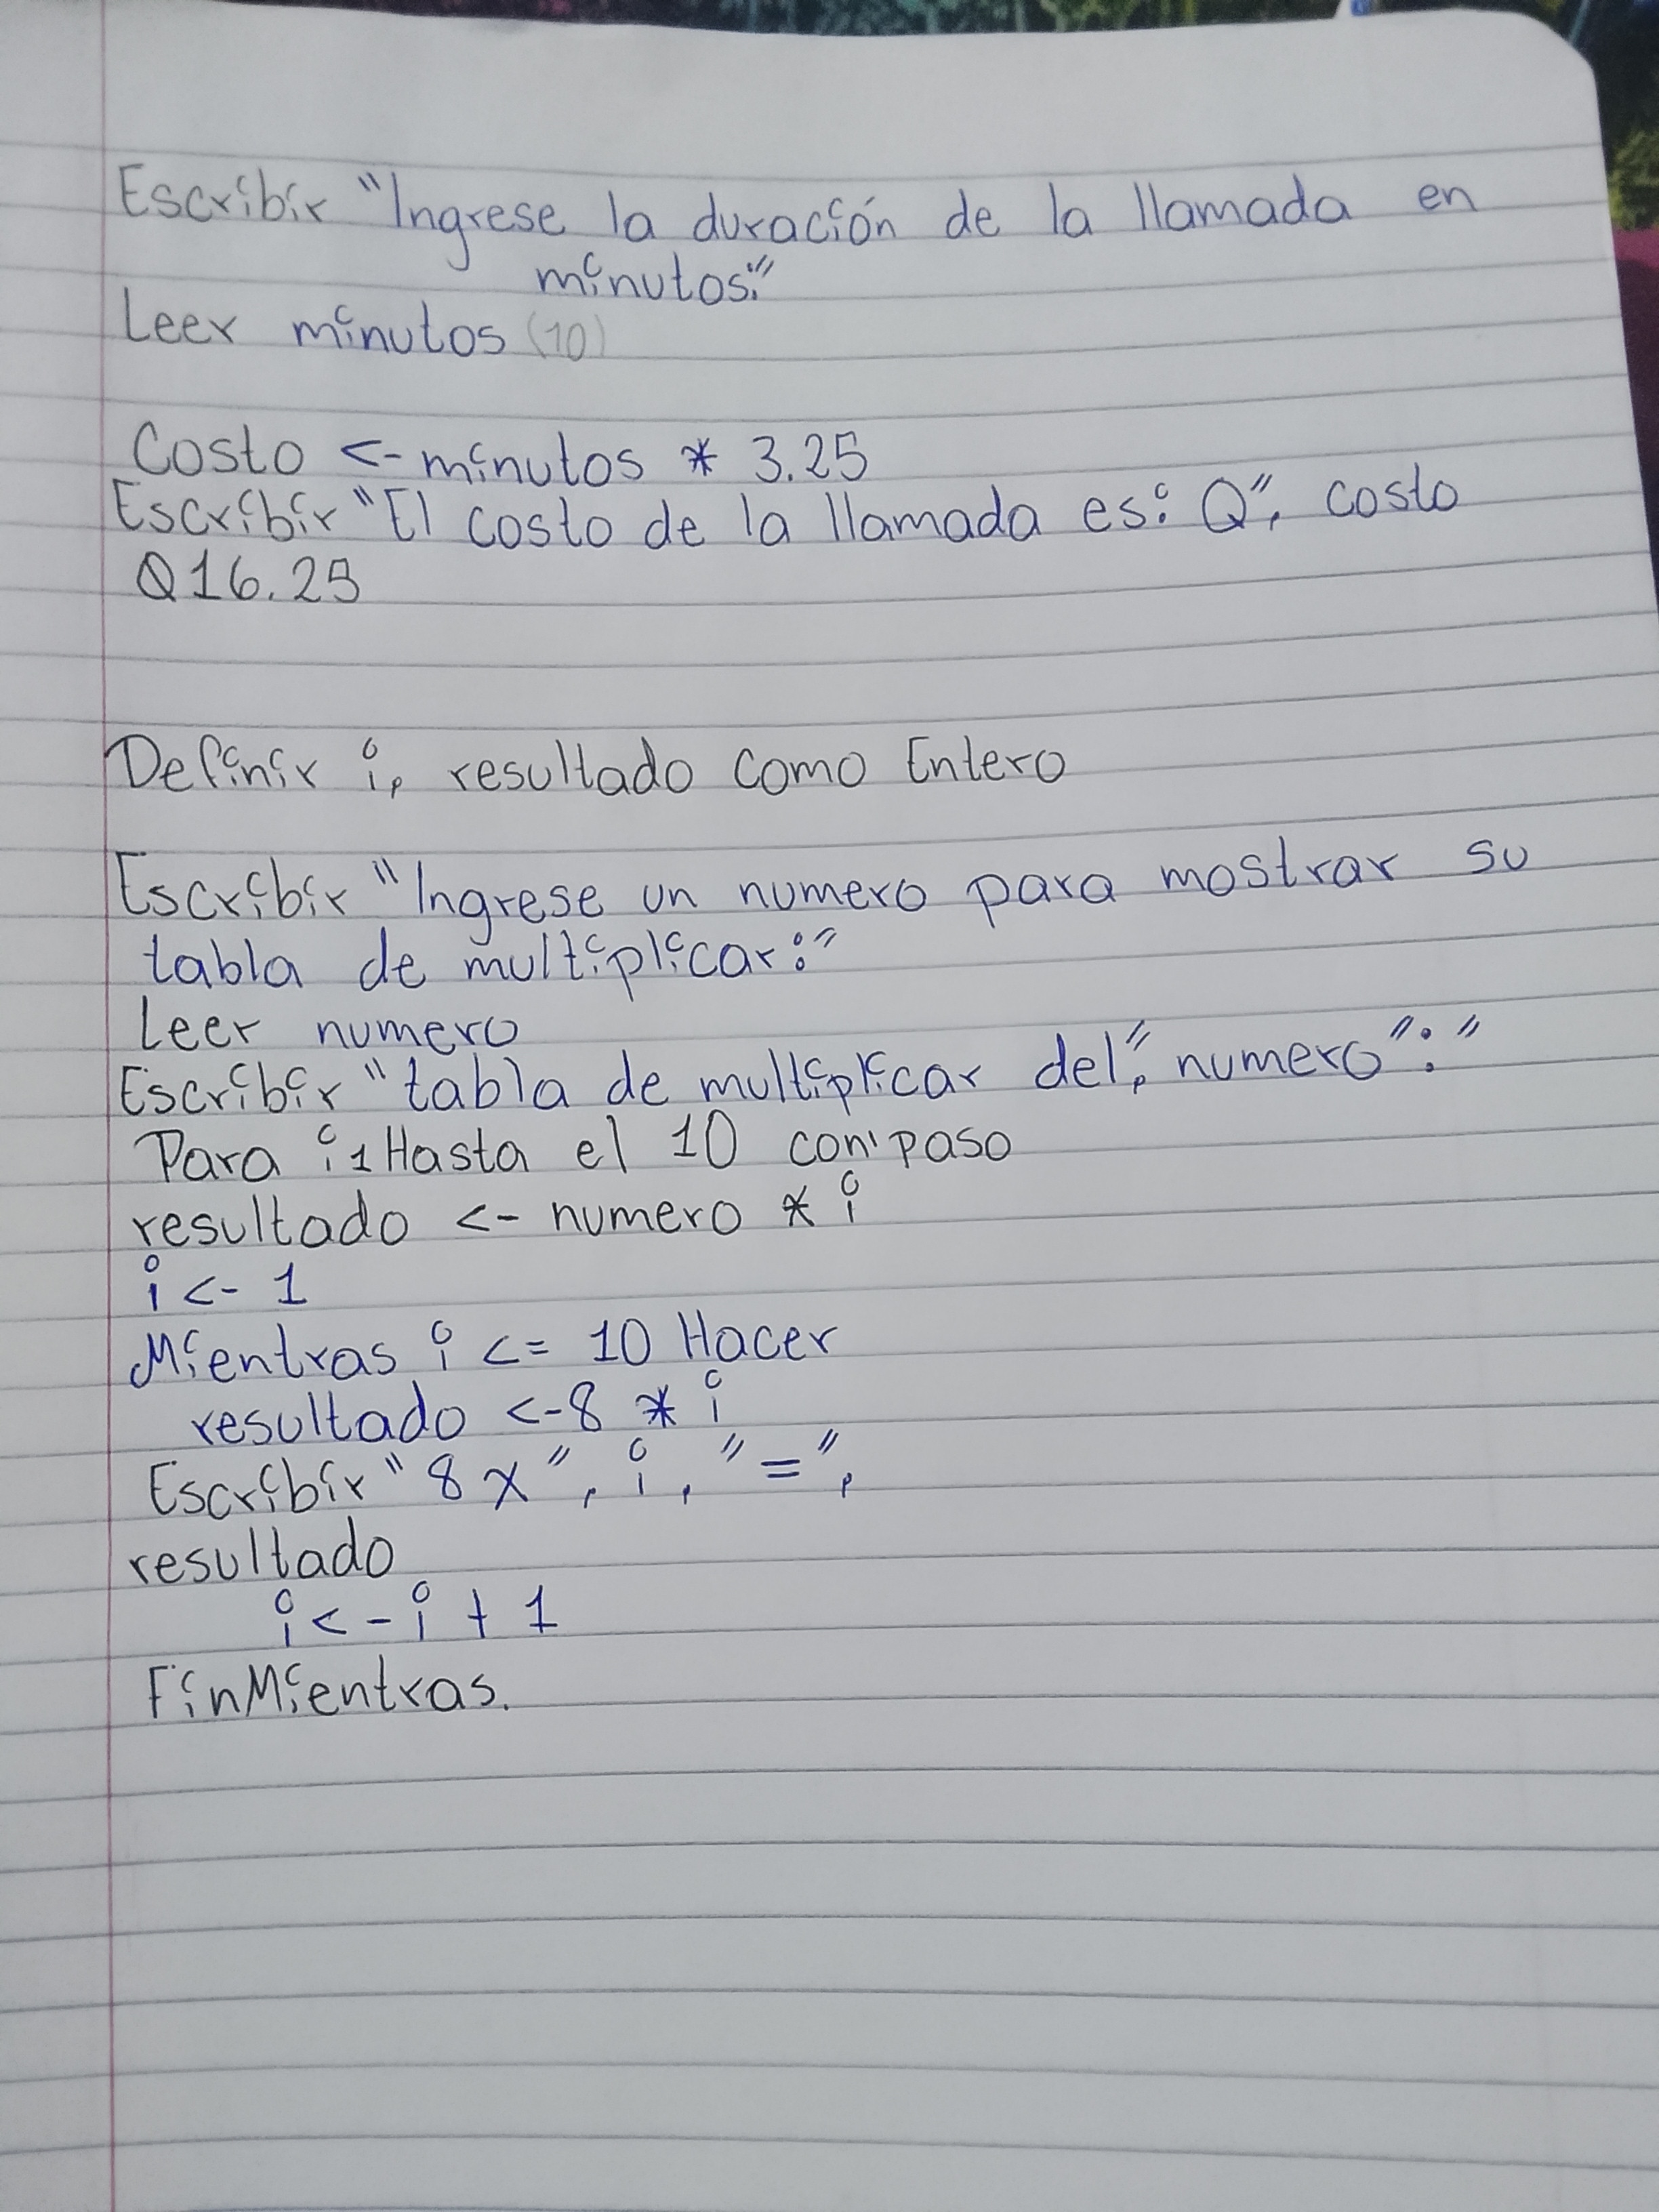 Escribir "Ingrese la duración de la llamada en
minutos:"
Leer minutos (10)
Costo <- minutos * 3.25
Escribir "El costo de la llamada es: Q", costo
Q16.25
Definir i, resultado como Entero
Escribir "Ingrese un numero para mostrar su
tabla de multiplicar:"
Leer numero
Escribir "tabla de multiplicar del", numero ":"
Para i 1 Hasta el 10 con paso
resultado <- numero * i
i <- 1
Mientras i <= 10 Hacer
resultado <- 8 * i
Escribir "8 x", i, "=",
resultado
i <- i + 1
FinMientras.